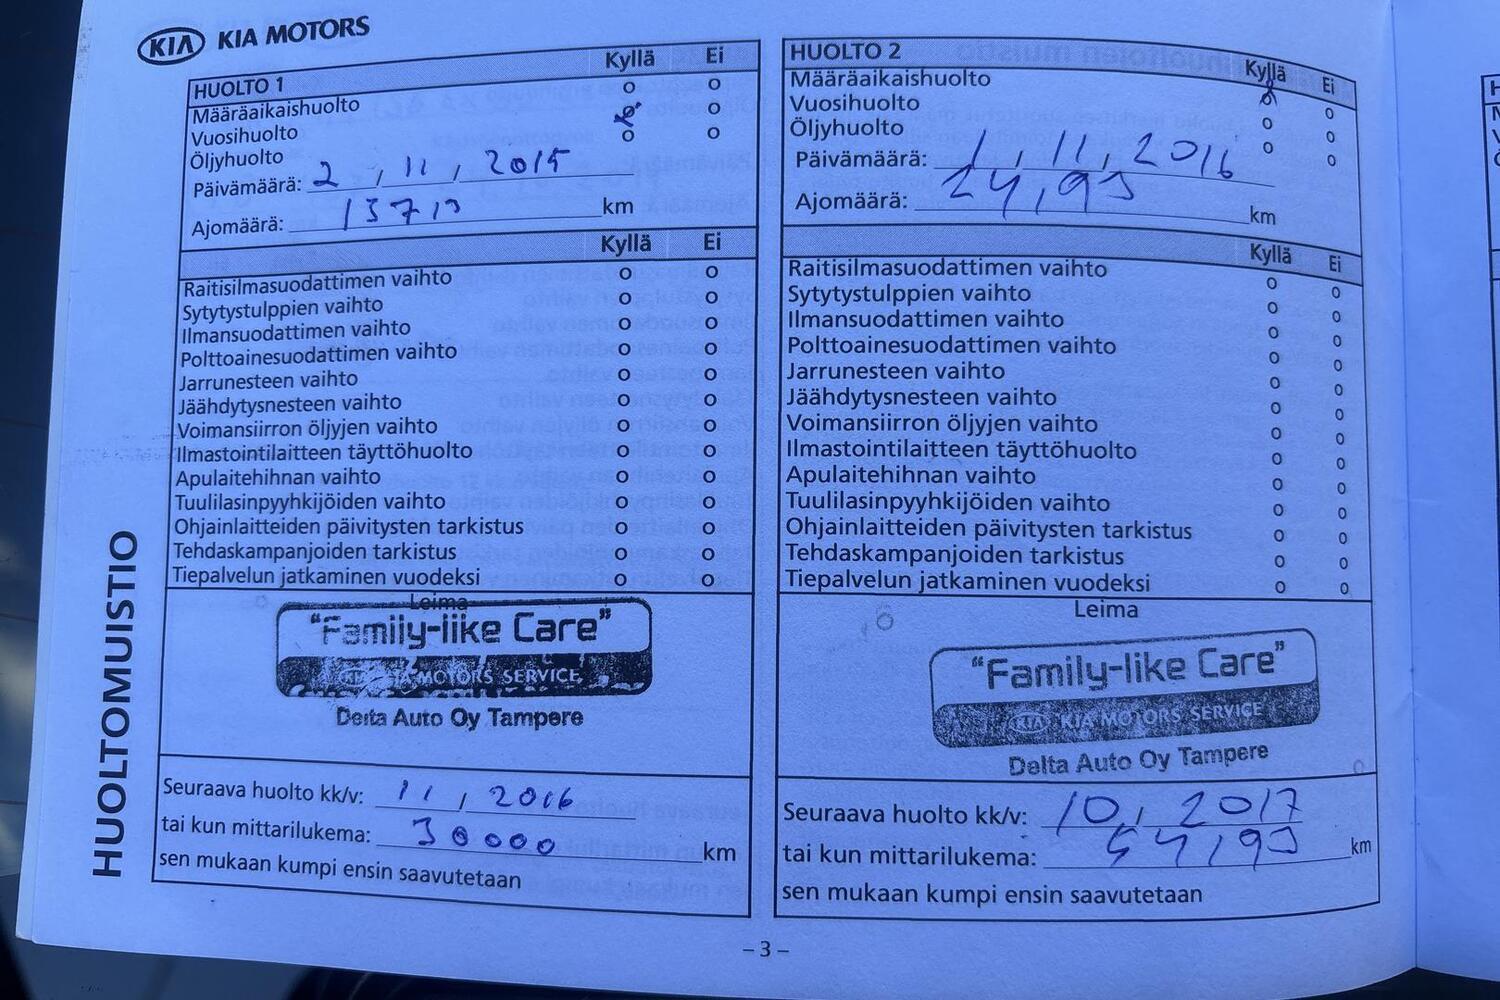 KIA KIA MOTORS
HUOLTOMUISTIO
HUOLTO 1 Kyllä Ei
Määräaikaishuolto o o
Vuosihuolto o
Öljyhuolto o o
Päivämäärä: 2, 11, 2015
Ajomäärä: 13713 km
Kyllä Ei
Raitisilmasuodattimen vaihto o o
Sytytystulppien vaihto o o
Ilmansuodattimen vaihto o o
Polttoainesuodattimen vaihto o o
Jarrunesteen vaihto o o
Jäähdytysnesteen vaihto o o
Voimansiirron öljyjen vaihto o o
Ilmastointilaitteen täyttöhuolto o o
Apulaitehihnan vaihto o o
Tuulilasinpyyhkijöiden vaihto o o
Ohjainlaitteiden päivitysten tarkistus o o
Tehdaskampanjoiden tarkistus o o
Tiepalvelun jatkaminen vuodeksi o o
Leima
"Family-like Care"
KIA KIA MOTORS SERVICE
Delta Auto Oy Tampere
Seuraava huolto kk/v: 11, 2016
tai kun mittarilukema: 30000 km
sen mukaan kumpi ensin saavutetaan
HUOLTO 2 Kyllä Ei
Määräaikaishuolto o
Vuosihuolto o o
Öljyhuolto o o
Päivämäärä: 1, 11, 2016
Ajomäärä: km
Kyllä Ei
Raitisilmasuodattimen vaihto o o
Sytytystulppien vaihto o o
Ilmansuodattimen vaihto o o
Polttoainesuodattimen vaihto o o
Jarrunesteen vaihto o o
Jäähdytysnesteen vaihto o o
Voimansiirron öljyjen vaihto o o
Ilmastointilaitteen täyttöhuolto o o
Apulaitehihnan vaihto o o
Tuulilasinpyyhkijöiden vaihto o o
Ohjainlaitteiden päivitysten tarkistus o o
Tehdaskampanjoiden tarkistus o o
Tiepalvelun jatkaminen vuodeksi o o
Leima
"Family-like Care"
KIA KIA MOTORS SERVICE
Delta Auto Oy Tampere
Seuraava huolto kk/v: 10, 2017
tai kun mittarilukema: km
sen mukaan kumpi ensin saavutetaan
– 3 –